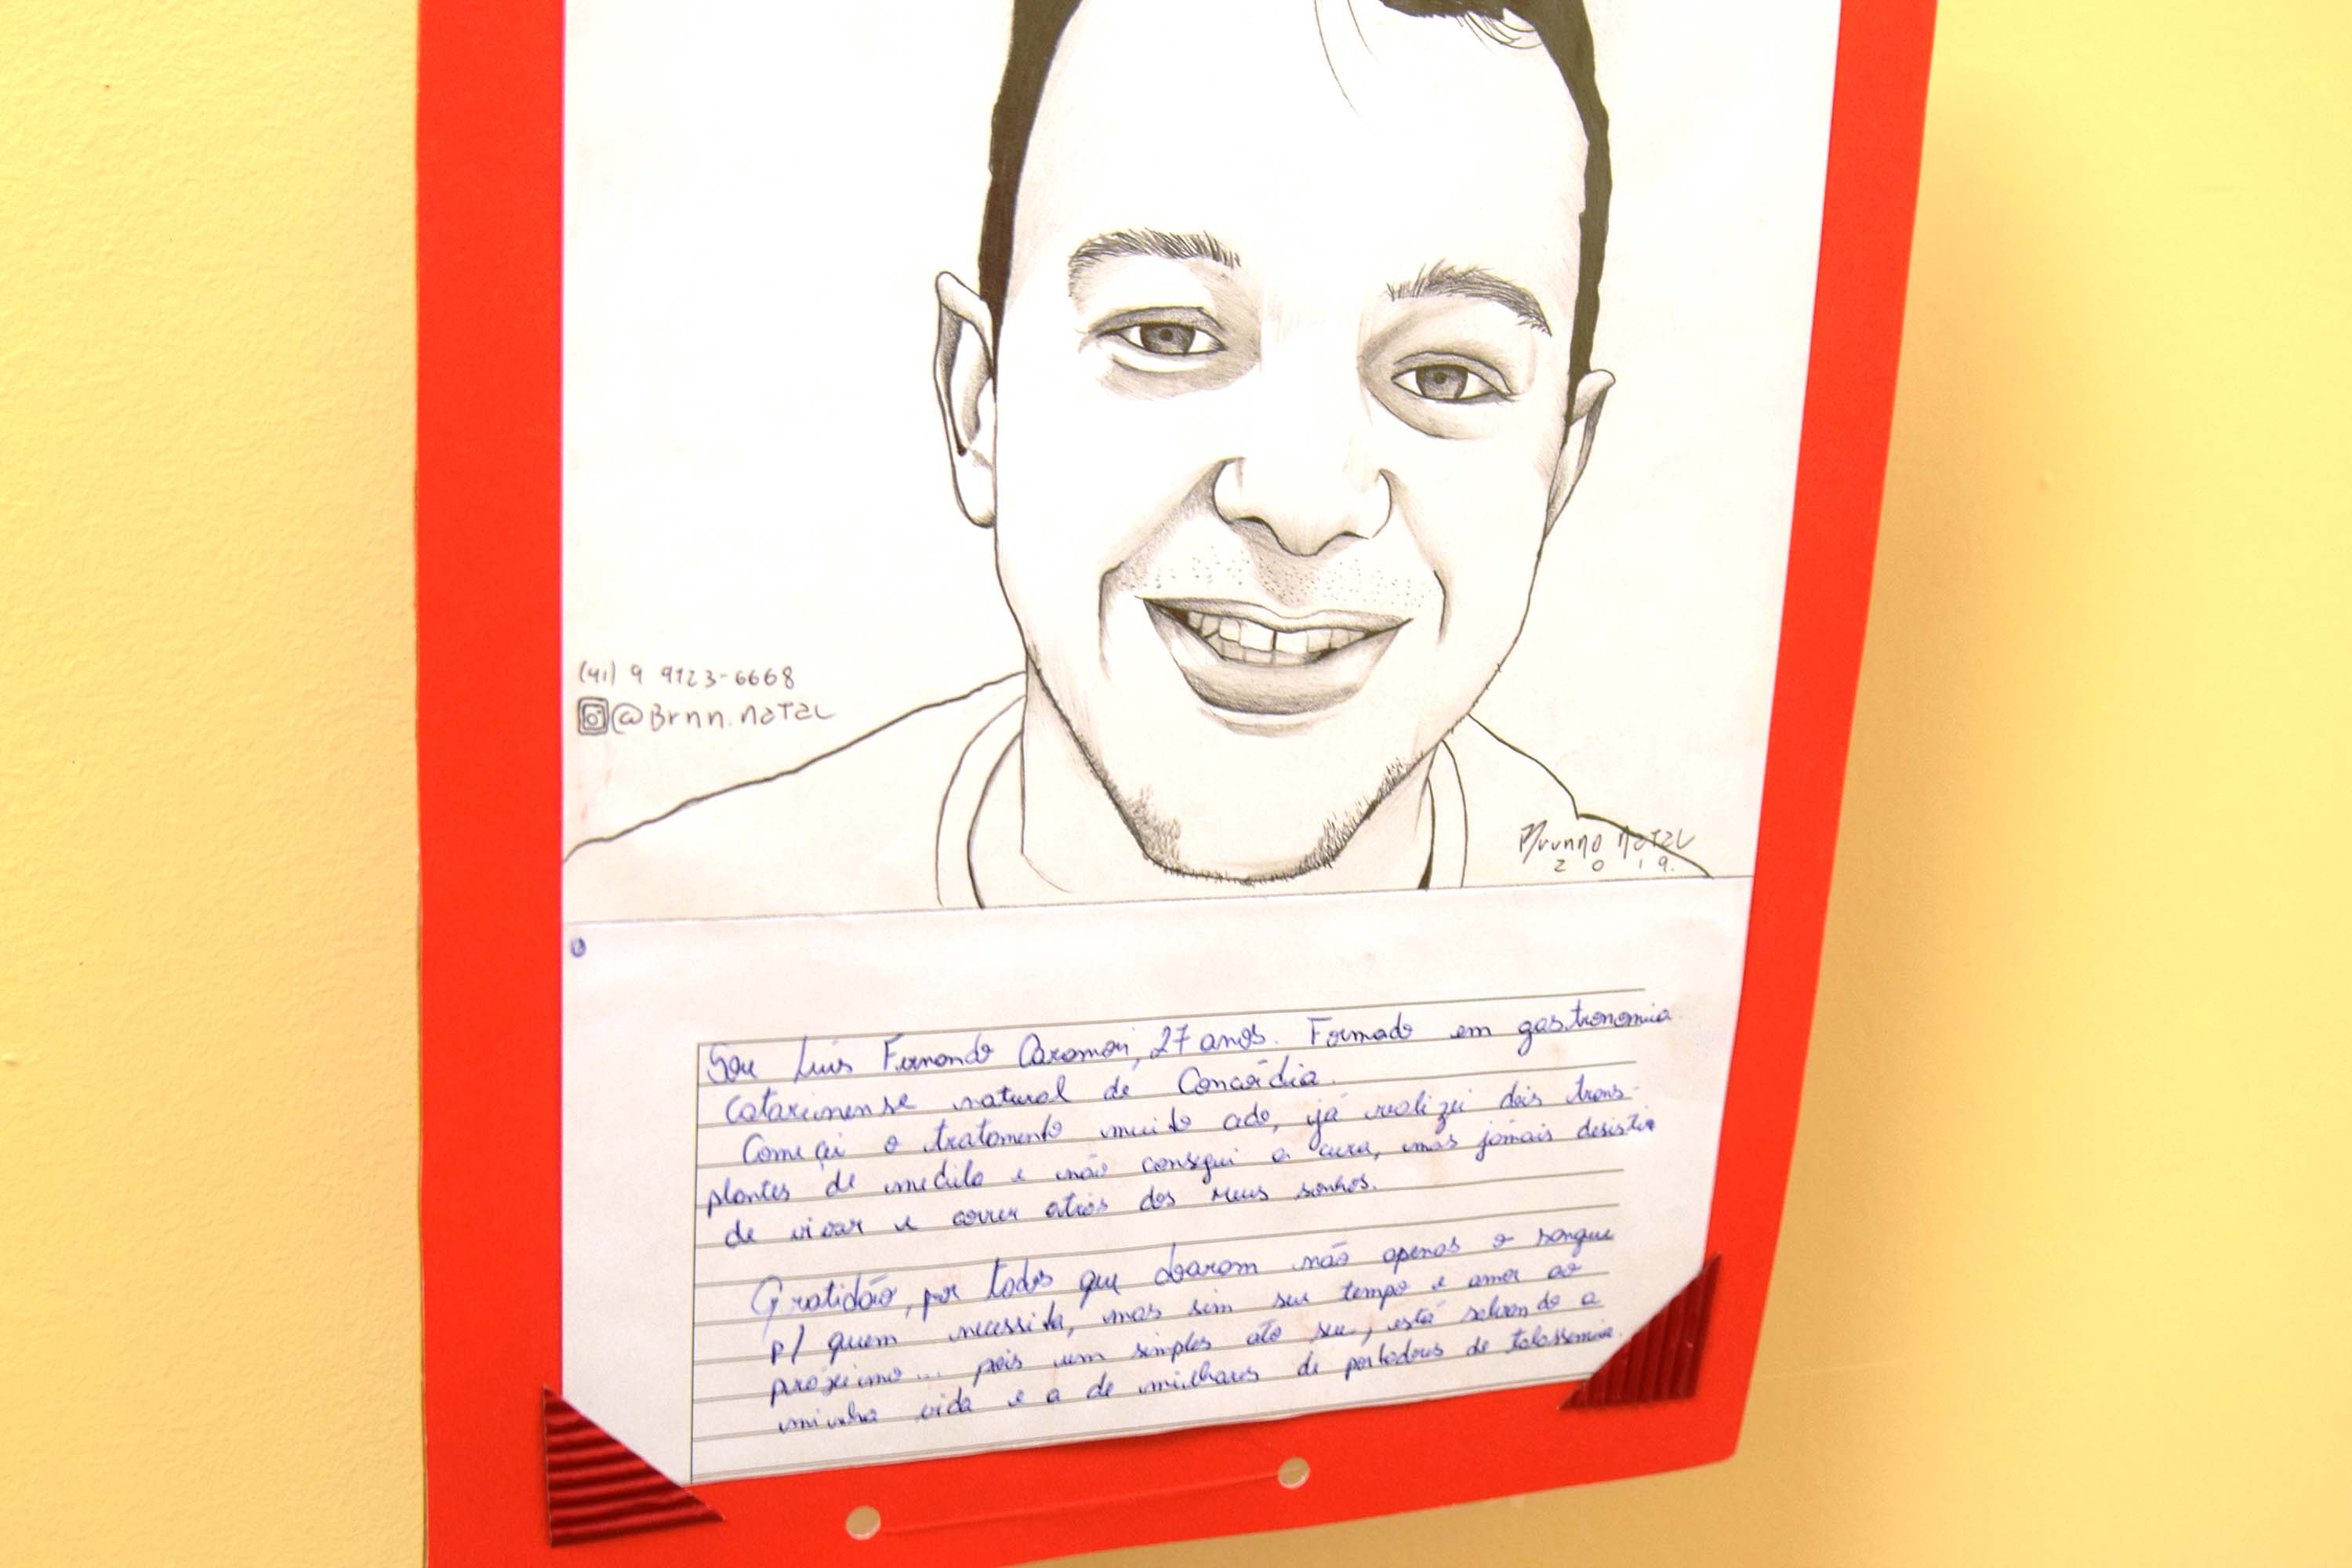 (41) 9 9123-6668
@Brnn.natal
Brunno Natal
2019.
Sou Luis Fernando Caramori, 27 anos. Formado em gastronomia
catarinense natural de Concórdia.
Começei o tratamento muito cedo, já realizei dois trans-
plantes de medula e não consegui a cura, mas jamais desistir
de viver e correr atrás dos meus sonhos.
Gratidão, por todos que doaram não apenas o sangue
p/ quem necessita, mas sim seu tempo e amor ao
próximo... pois um simples ato seu, está salvando a
minha vida e a de milhares de portadores de talassemia.